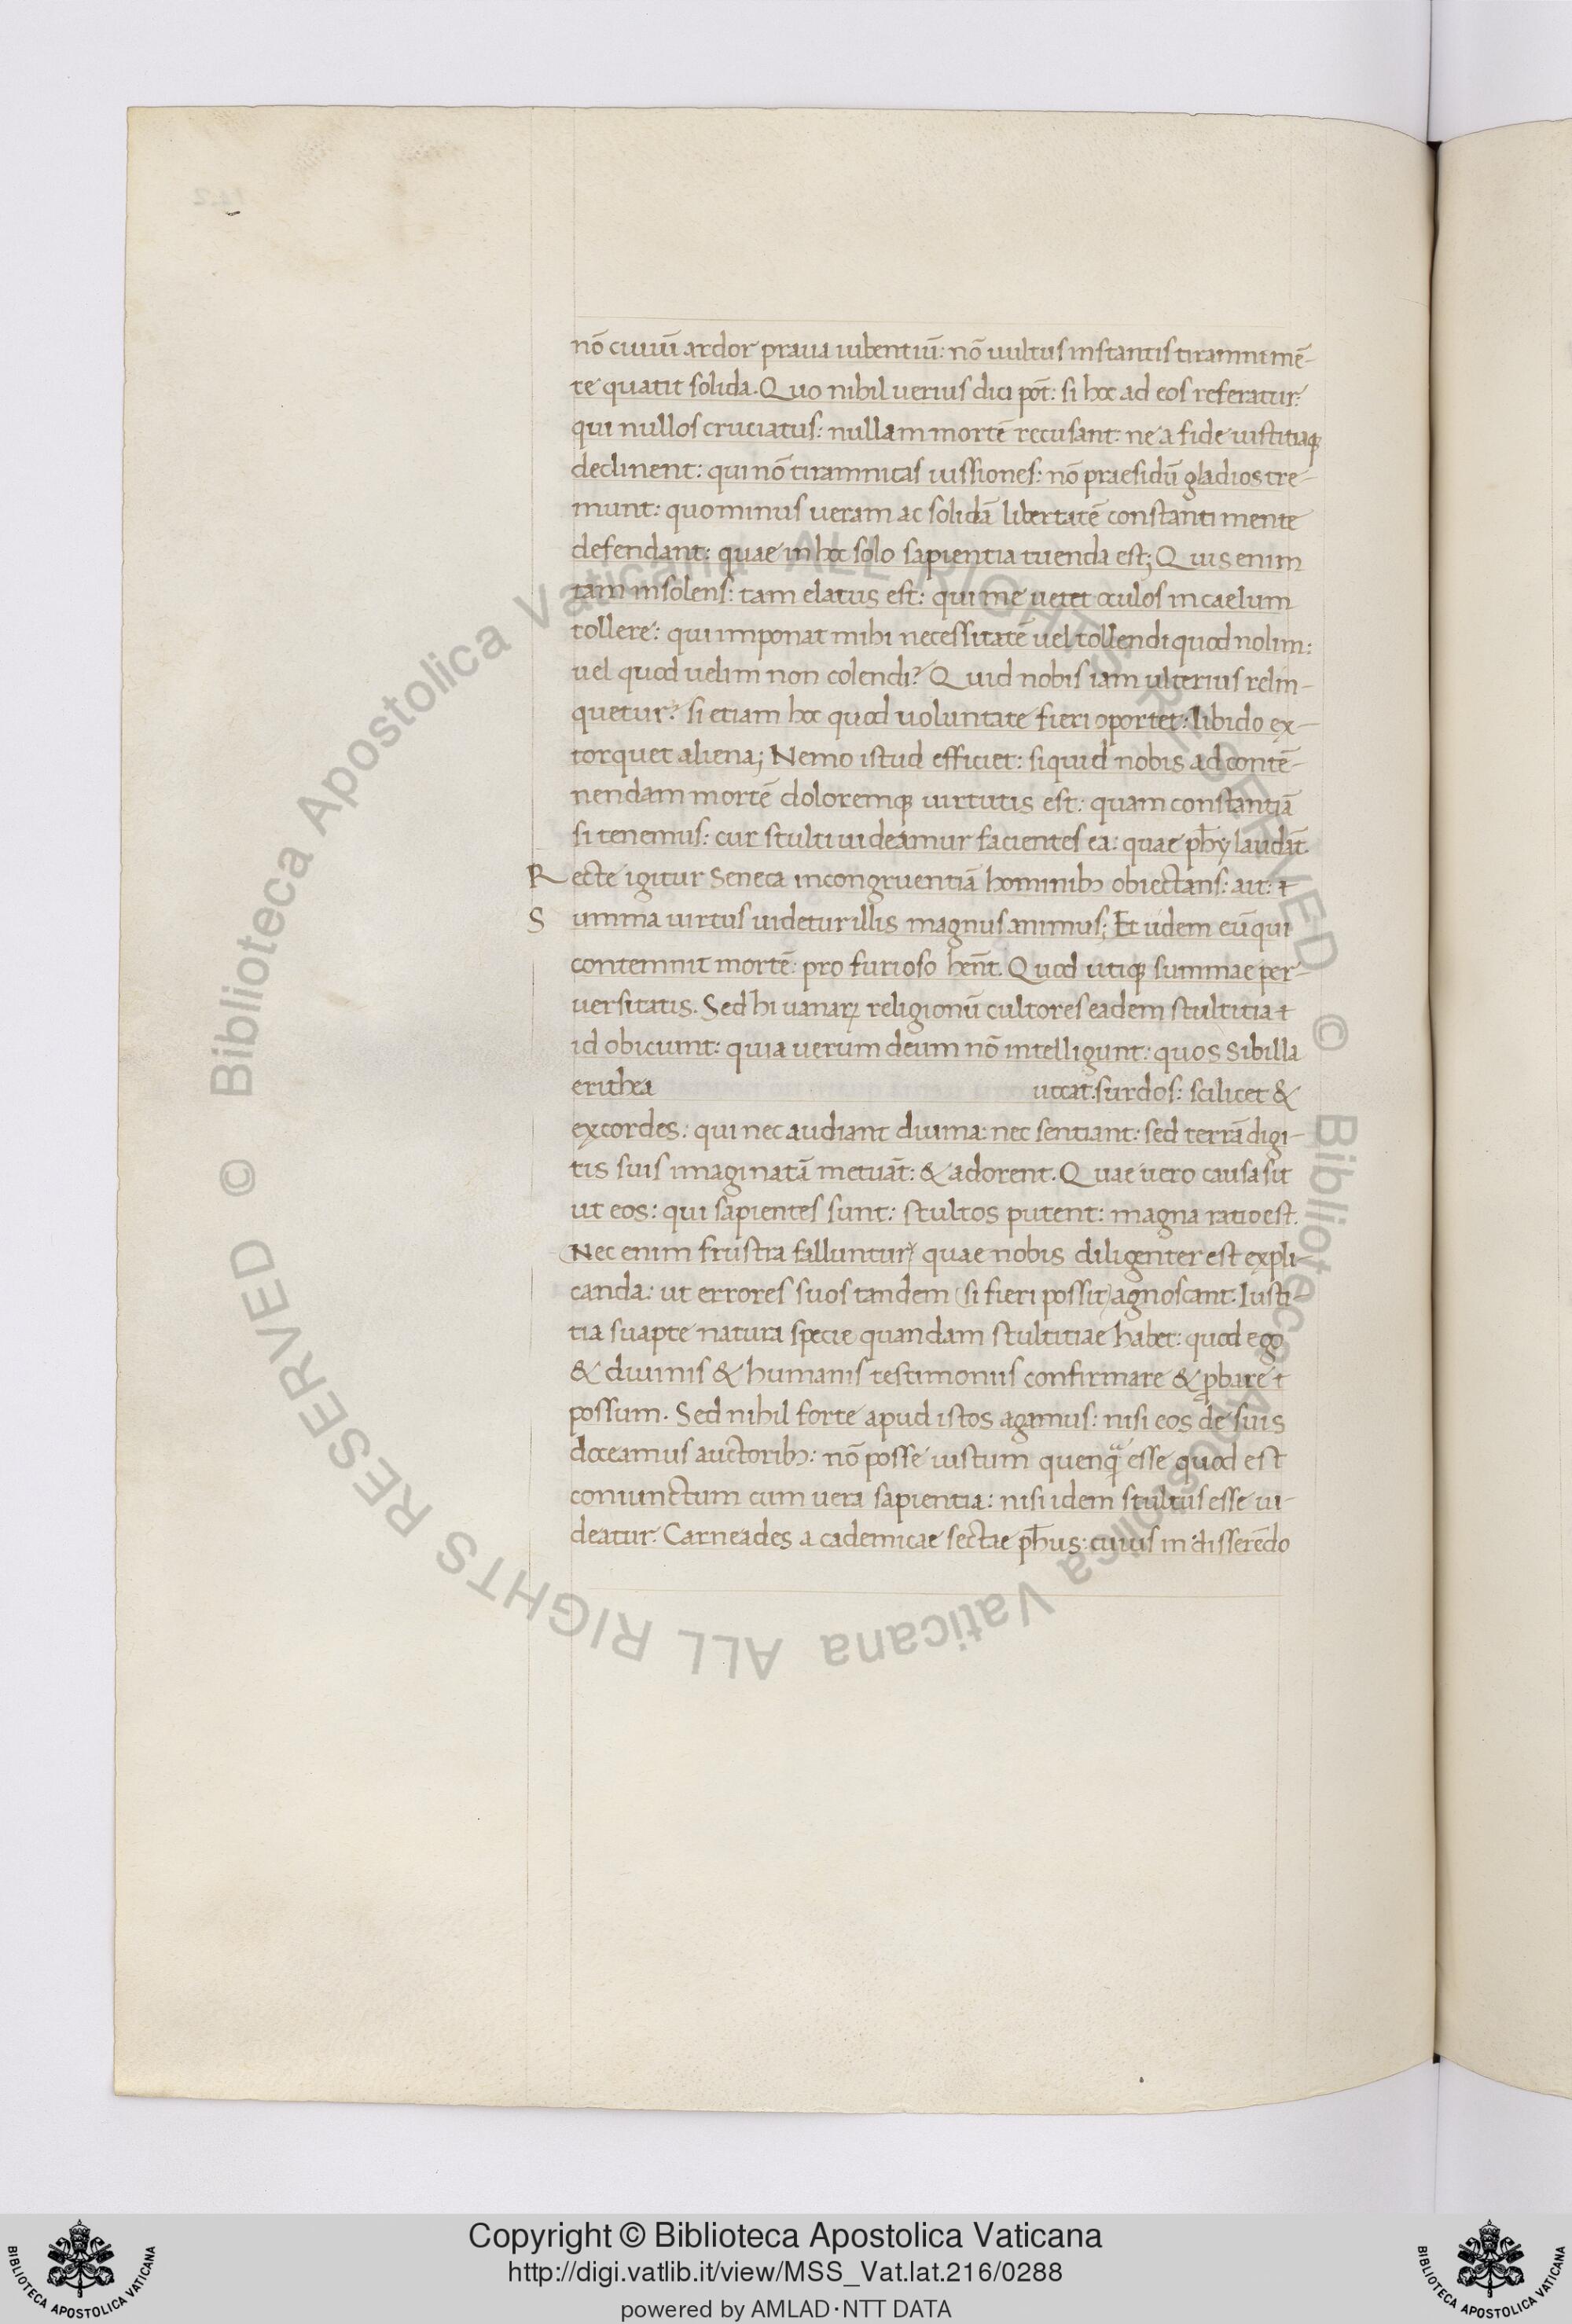 nō ciuiū ardor praua iubentiū: nō uultus instantis tiramni mē-
te quatit solida. Quo nihil uerius dici pōt: si hoc ad eos referatur:
qui nullos cruciatus: nullam mortē recusant: ne a fide iustitiaqꝫ
declinent: qui nō tiramnicas iussiones: nō praesidū gladios tre-
munt: quominus ueram ac solidā libertatē constanti mente
defendant: quae in hoc solo sapientia tuenda est; Quis enim
tam insolens: tam elatus est: qui me uetet oculos in caelum
tollere: qui imponat mihi necessitatē uel tollendi quod nolim:
uel quod uelim non colendi? Quid nobis iam ulterius relin-
quetur? si etiam hoc quod uoluntate fieri oportet: libido ex-
torquet aliena; Nemo istud efficiet: siquid nobis ad contē-
nendam mortē doloremqꝫ uirtutis est: quam constantiā
si tenemus: cur stulti uideamur facientes ea: quae ph̄y laudāt.
Recte igitur Seneca incongruentiā hominibꝫ obiectans: ait: ⁊
Summa uirtus uidetur illis magnus animus; Et iidem eū qui
contemnit mortē: pro furioso hēnt. Quod utiqꝫ summae per-
uersitatis. Sed hi uanaꝝ religionū cultores eadem stultitia ⁊
id obiciunt: quia uerum deum nō intelligunt: quos Sibilla
erithea uocat. surdos: scilicet &
excordes: qui nec audiant diuina: nec sentiant: sed terrā digi-
tis suis imaginatā metuāt: & adorent. Quae uero causa sit
ut eos: qui sapientes sunt: stultos putent: magna ratio est.
(Nec enim frustra falluntur) quae nobis diligenter est expli-
canda: ut errores suos tandem (si fieri possit) agnoscant. Iusti-
tia suapte natura specie quandam stultitiae habet: quod ego
& diuinis & humanis testimoniis confirmare & ꝓbare ⁊
possum. Sed nihil forte apud istos agimus: nisi eos de suis
doceamus auctoribꝫ: nō posse iustum quenqȝ̄ esse quod est
coniunctum cum uera sapientia: nisi idem stultus esse ui-
deatur. Carneades academicae sectae ph̄us: cuius in disserēdo
© Biblioteca Apostolica Vaticana ALL RIGHTS RESERVED © Biblioteca Apostolica Vaticana ALL RIGHTS RESERVED
Copyright © Biblioteca Apostolica Vaticana
http://digi.vatlib.it/view/MSS_Vat.lat.216/0288
powered by AMLAD·NTT DATA
BIBLIOTECA APOSTOLICA VATICANA
BIBLIOTECA APOSTOLICA VATICANA